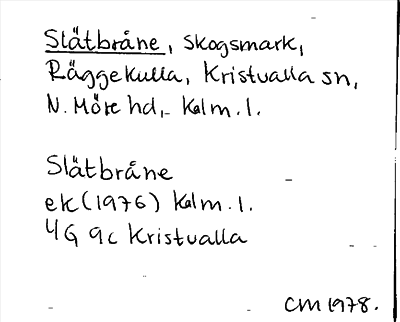 Slätbråne, skogsmark,
Räggekulla, Kristvalla sn,
N. Möre hd, Kalm. l.
Slätbråne
ek (1976) Kalm. l.
4G 9c Kristvalla
CM 1978.